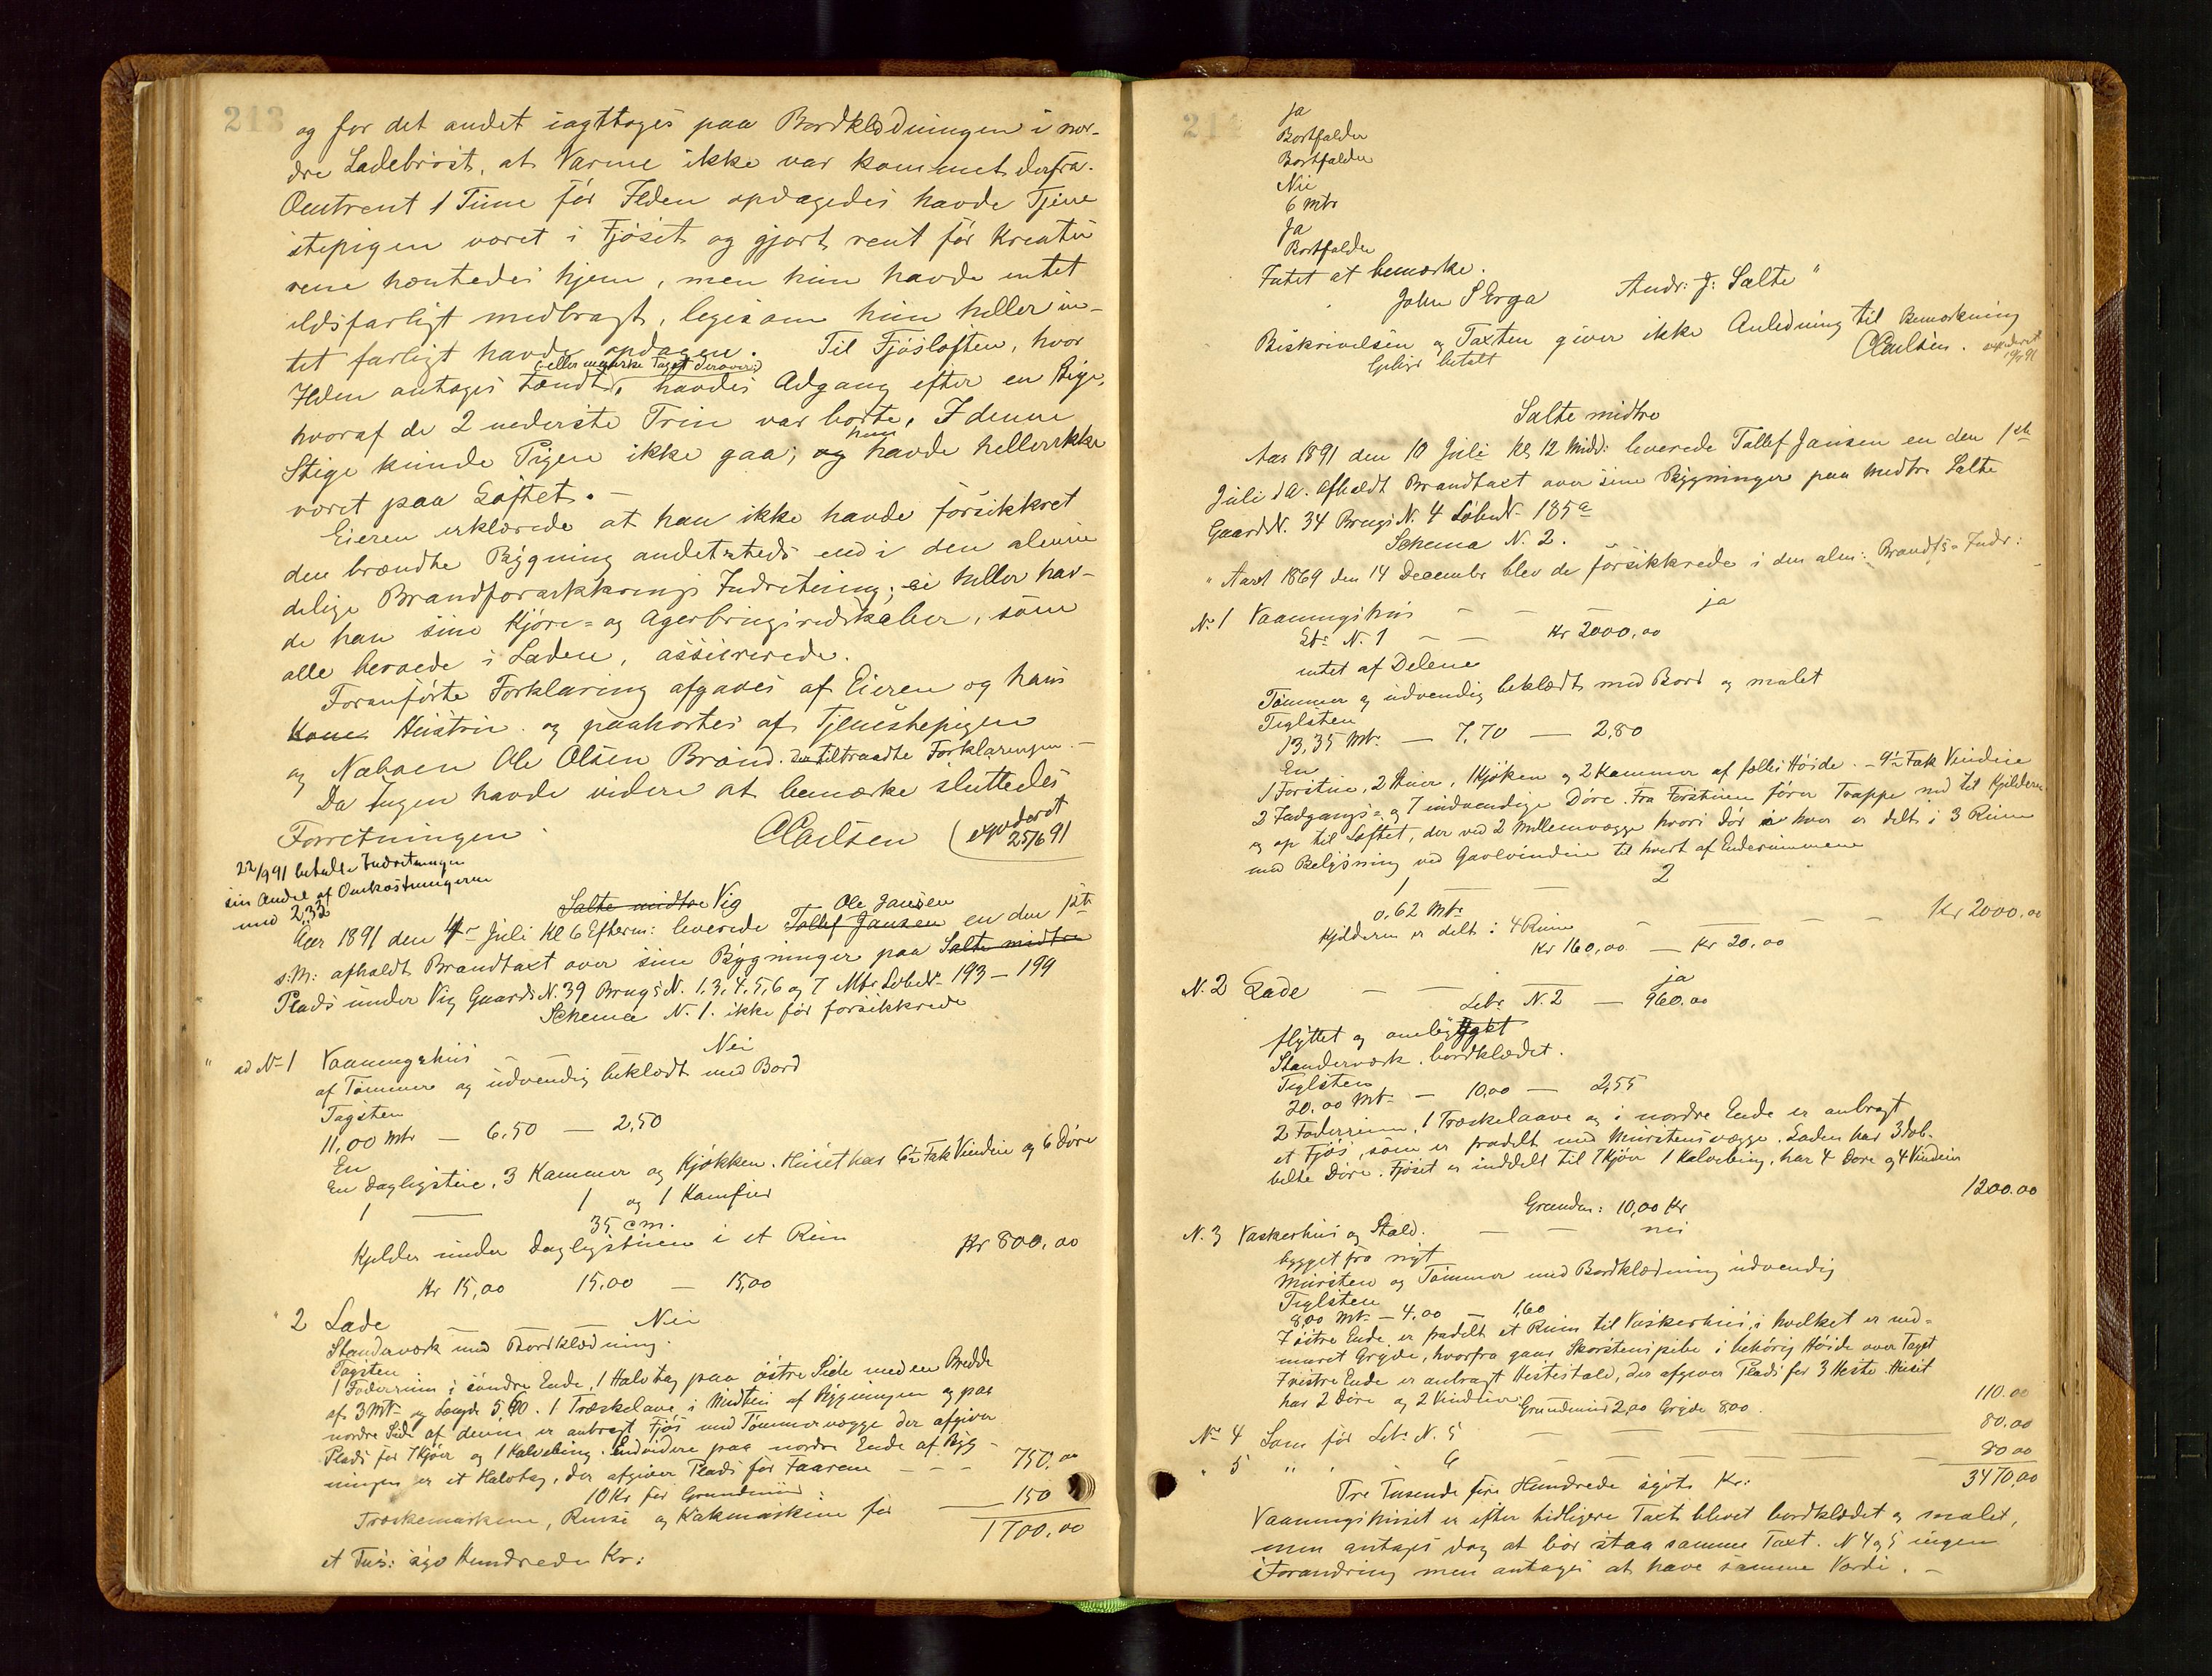 213
og for det andet iagttoges paa Bordklædningen i nor-
dre Ladebröst, at Varme ikke var kommet derfra.
Omtrent 1 Time før Ilden opdagedes havde Tjene
stepigen været i Fjøset og gjort rent før Kreatu
rene hentedes hjem, men hun havde intet
ildsfarligt medbragt, ligesom hun heller in-
tet farligt havde opdagen. Til Fjøsloften, hvor
(: eller mørke Taget derover:)
Ilden antages tændt, havdes Adgang efter en Stige,
hvoraf de 2 nederste Trin var borte, I denne
Stige kunde Pigen ikke gaa; og hun havde heller ikke
været paa Loftet. —
Eieren erklærede at han ikke havde forsikkret
den brændte Bygning andetsteds end i den almin
delige Brandforsikkrings Indretning; ei heller hav-
de han sine Kjøre- og Agerbrugsredskaber, som
alle beroede i Laden, assurerede.
Foranførte Forklaring afgaves af Eieren og hans
Kone Hustru og paahørtes af Tjenestepigen
og Naboen Ole Olsen Brand. der tiltraadte Forklaringen. —
Da Ingen havde videre at bemærke sluttedes
Forretningen.
CCarlsen (expederet
25/6 91
22/9 91 betalte Indretningen
sin Andel af Omkostningerne
med 2,32
Salte midtre Vig
Ole Jansen
Aar 1891 den 4de Juli Kl 6 Efterm: leverede Tollef Jansen en den 1ste
s.M: afholdt Brandtaxt over sine Bygninger paa Salte midtre
Plads under Vig Gaards N. 39 Brugs N. 1, 3, 4, 5, 6 og 7 Mtr Løbe N. 193 – 199
Schema N. 1. ikke før forsikkrede
" ad No 1 Vaaningshus Nei
af Tømmer og udvendig beklædt med Bord
Tagsten
11,00 Mtr — 6,50 — 2,50
En
En Dagligstue, 3 Kammer og Kjøkken. Huset har 6½ Fak Vindue og 6 Døre
1 — 1 og 1 Kamfur
35 cm.
Kjelder under Dagligstuen i et Rum Kr 800,00
Kr 15,00 15.00 — 15,00
2 Lade — — Nei
Standerværk med Bordklædning.
Tagsten
1 Foderrum i søndre Ende, 1 Halvtag paa østre Side med en Bredde
af 3 Mt og Længde 5,60. 1 Træskelave i Midten af Bygningen og paa
nordre Side af denne er anbragt Fjøs med Tømmervægge der afgiver
Plads for 7 Kjør og 1 Kalvebing. Endvidere paa nordre Ende af Byg-
ningen er et Halvtag, der afgiver Plads for Faarene — — — 750,00
10 Kr for Grundmur:
Træskemaskine, Rense og Kakmaskine for — 150
1700,00
et Tus: syv Hundrede Kr:
214
Ja
Bortfalder
Bortfalder
Nei
6 Mtr
Ja
Bortfalder
Intet at bemærke.
John S Erga Andr: J: Salte "
Beskrivelsen og Taxten giver ikke Anledning til Bemærkning
Gebyr betalt CCarlsen. expederet
Salte midtre
Aar 1891 den 10 Juli Kl 12 Midd: leverede Tollef Jansen en den 1ste
Juli d A. afholdt Brandtaxt over sine Bygninger paa Medtre Salte
Gaards N. 34 Brugs N. 4 Løbe N. 185a
Schema N. 2.
" Aaret 1869 den 14 December blev de forsikkrede i den alm: Brandfs=Indr:
No. 1 Vaaningshus — — — ja
Litr N. 1 — — Kr 2000,00
intet af Delene
Tømmer og udvendig beklædt med Bord og malet
Teglsten
13,35 Mtr — 7,70 — 2,80
En
1 Forstue, 2 Stuer, 1 Kjøken og 2 Kammer af fælles Høide. – 9½ Fak Vinduer
2 Indgangs= og 7 indvendige Døre. Fra Forstuen fører Trappe ned til Kjelderen
og op til Loftet, der ved 2 Mellemvægge hvori Dør i hver er delt i 3 Rum
med Belysning ved Gavlvinduer til hvert af Enderummene
1 — — 2
0,62 Mtr
Kjelderen er delt i 4 Rum — — — — Kr 2000,00
Kr 160,00 — Kr 20,00
N. 2 Lade — — — ja
Litr N. 2 — 960.00
flyttet og ombygget
Standerværk, bordklædet.
Teglsten
20.00 Mt. — 10,00 — 2,55
2 Foderrum, 1 Træskelaave og i nordre Ende er anbragt
et Fjøs, som er fradelt med Murstensvægge. Laden har 3 dob-
belte Døre. Fjøset er inddelt til 7 Kjør 1 Kalvebing, har 4 Døre og 4 Vinduer
1200.00
Grunden: 10,00 Kr
N. 3 Vaskerhus og Stald. — — nei
bygget fra nyt
Mursten og Tømmer med Bordklædning udvendig
Teglsten
8,00 Mt. — 4,00 — 1,60
I østre Ende er fradelt et Rum til Vaskerhus, i hvilket er ind=
muret Gryde, hvorfra gaar Skorstenspibe i behørig Høide over Taget
I vestre Ende er anbragt Hestestald, der afgiver Plads for 3 Heste. Huset
har 2 Døre og 2 Vinduer. Grundmur 2,00 Gryde 8,00. 110.00
No 4 Som før Litr N. 5 — — — — — 80.00
" 5 " " 6 — — — — — 80.00
3470,00
Tre Tusende fire Hundrede sytti Kr:
Vaaningshuset er efter tidligere Taxt blevet bordklædet og malet,
men antages dog at bør staa samme Taxt. N 4 og 5 ingen
Forandring men antages at have samme Værdi. –